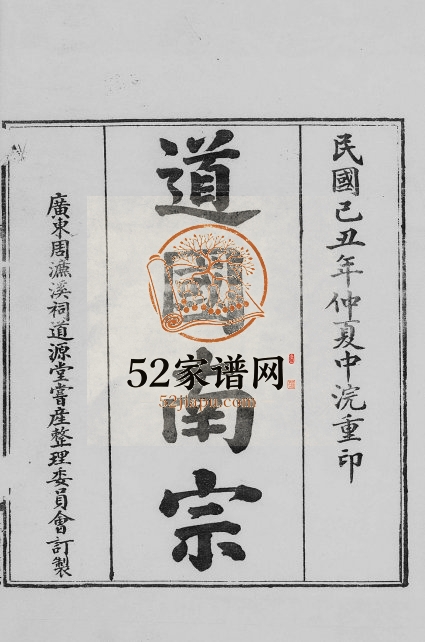 民國己丑年仲夏中浣重印
道國南宗
廣東周濂溪祠道源堂嘗產整理委員會訂製
52家谱网
52jiapu.com